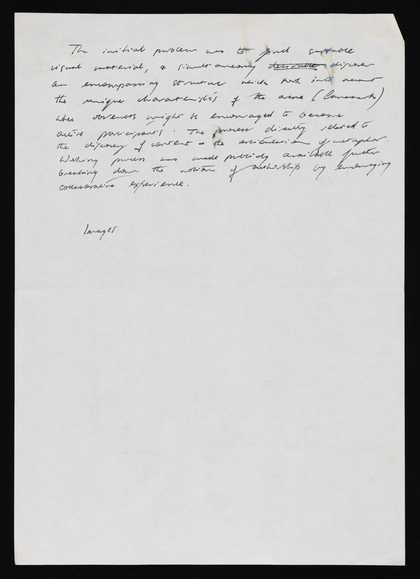 The initial problem was to find suitable
visual material, & simultaneously discover
an encompassing structure which took into account
the unique characteristics of the area (
where tenants might be encouraged to become
active participants. The process directly related to
the discovery of content & the
making process was made publicly available further
breaking down the notion of authorship by encouraging
collaborative experience.
Images